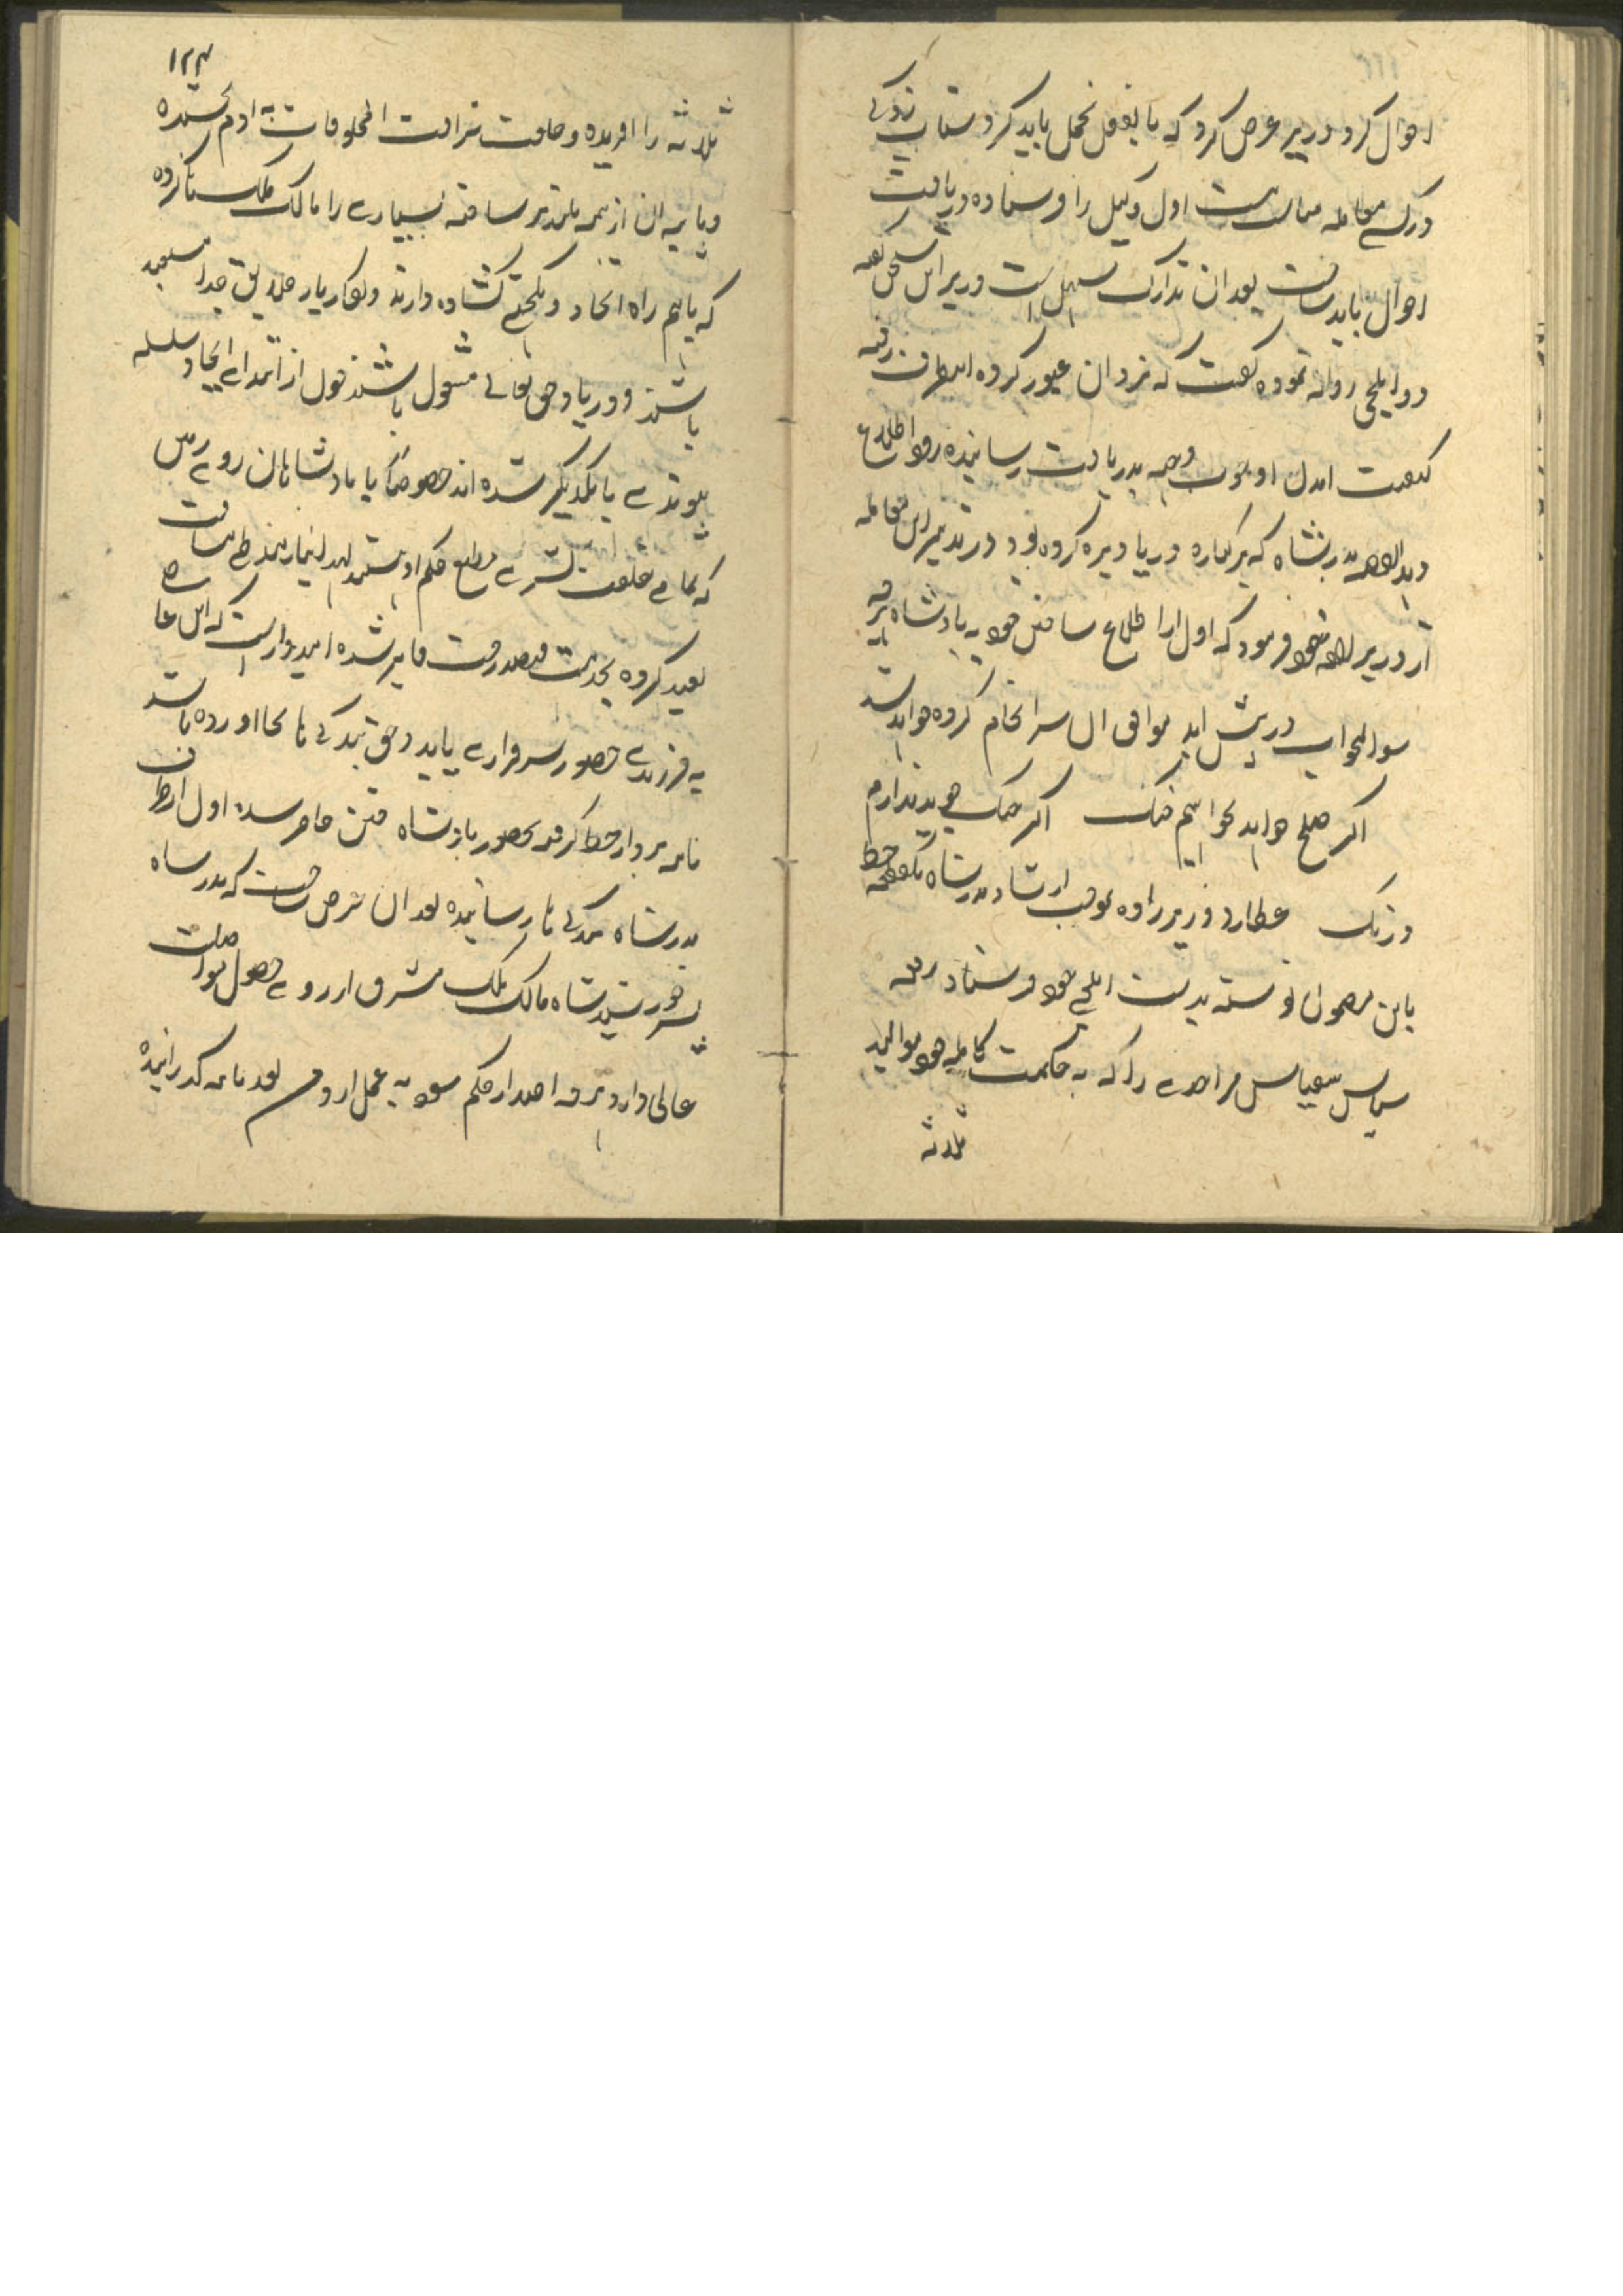 احوال کرد وزیر عرض کرد که بالفعل تحمل باید کرد شتاب زدگی
درین معامله مناسب نیست اول وکیل را فرستاده دریافت
احوال باید ساخت بعد ازان تدارک سهل است وزیر این سخن گفته
دو ایلچی روانه نموده گفت که نزد ان عبور کرده اینطرف رفته
کیفیت آمدن او بوجه دریافت رسانیده زود اطلاع
بدر شاه که بر کناره دریا دیره کرده بود در تدبیر این معامله
از وزیر خود فرمود که اول اطلاع ساختن خود به بادشاه
سوال جواب در پیش اید موافق ان سرانجام کرده خواهد شد
اگر صلح خواهد بخواهیم جنگ اگر جنگ جوید نداریم
درنگ عطارد وزیرزاده بموجب ارشاد بدرشاه خط
باین مضمون نوشته بدست ایلچی خود فرستاد رقعه
سپاس بیقیاس مر احدی را که به حکمت کامله خود موالید
ثلاثه
۱۲۳
ثلاثه را افریده و خلعت شرافت المخلوقات به آدم بخشیده
و پایه ان از همه بلندتر ساخته بسیاری را مالک ملک ستا کرده
که باهم راه اتحاد و یکجهتی کشاده دارند و بکار بار خلایق خدا مستعد
باشند و در یاد حق تعالی مشغول باشند چون از ابتدای ایجاد سلسله
پیوندی با یکدیگر شده اند خصوصا با بادشاهان روی زمین
که تمامی خلقت بشری مطیع حکم او هستند لهذا نیازمند طی مسافت
بعید کرده بخدمت فیضدرجت فایز شده امیدوار است که این عاصی
به فرزندی حضور سرفرازی یابد و حق بندگی ها بجا آورده باشد
نامه بردار خط گرفته بحضور بادشاه ختن حاضر شده اول از طرف
بدرشاه بندگی ها رسانیده بعد ازان عرض ساخت که بدرشاه
پسر خورشید شاه مالک ملک مشرق آرزوی حصول مواصلت
عالی دارد هرچه اصدار حکم شود به عمل آرم بعد نامه گذرانیده